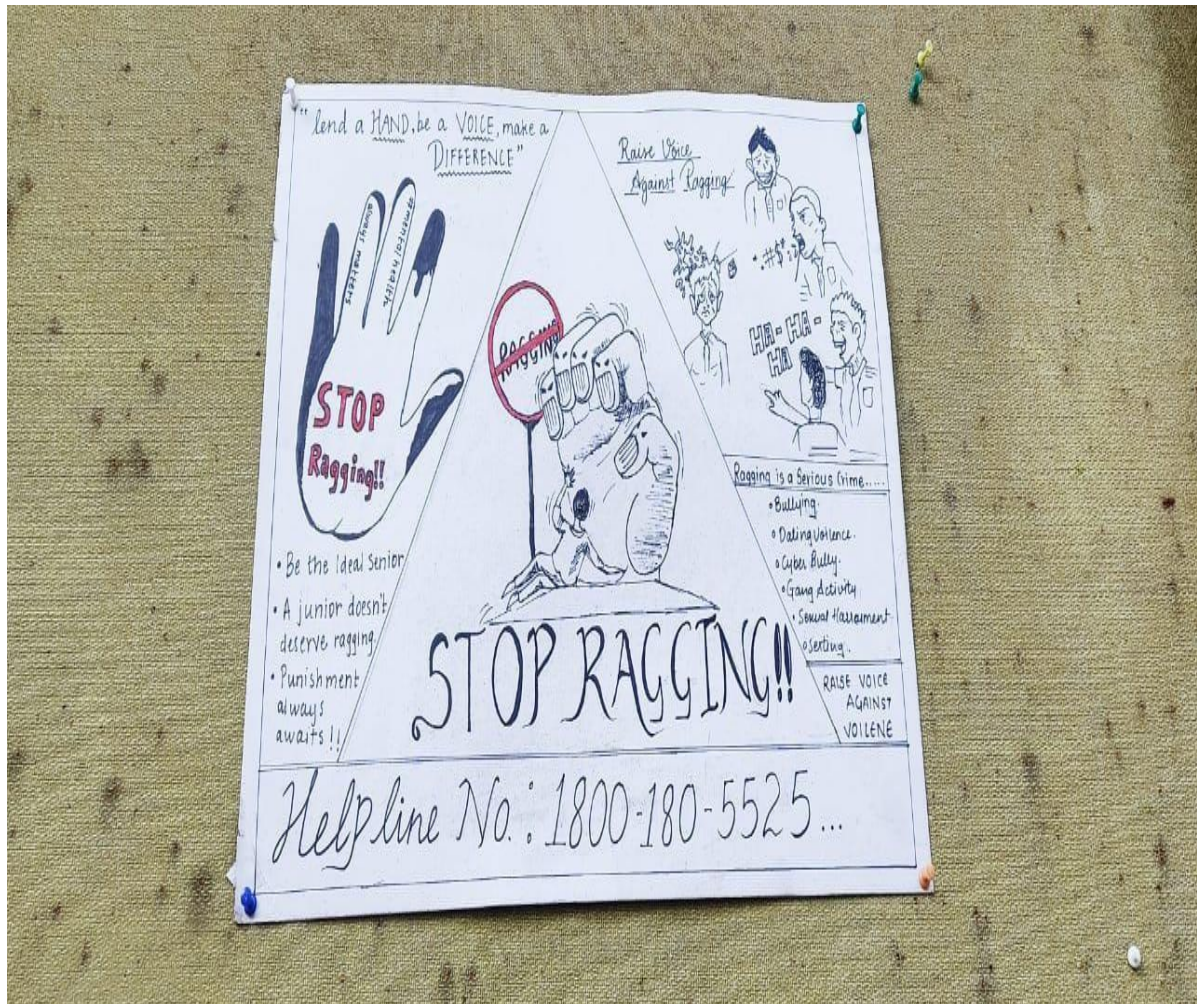 "lend a HAND, be a VOICE, make a
DIFFERENCE"
always matters
mental health
STOP
Ragging!!
• Be the Ideal Senior
• A junior doesn't
deserve ragging
• Punishment
always
awaits!!
RAGGING
STOP RAGGING!!
Raise Voice
Against Ragging
#$
HA-HA-
HA
Ragging is a Serious Crime.....
• Bullying.
• Dating Voilence.
• Cyber Bully.
• Gang Activity
• Sexual Harrasment
• Sexting.
RAISE VOICE
AGAINST
VOILENE
Helpline No.: 1800-180-5525...